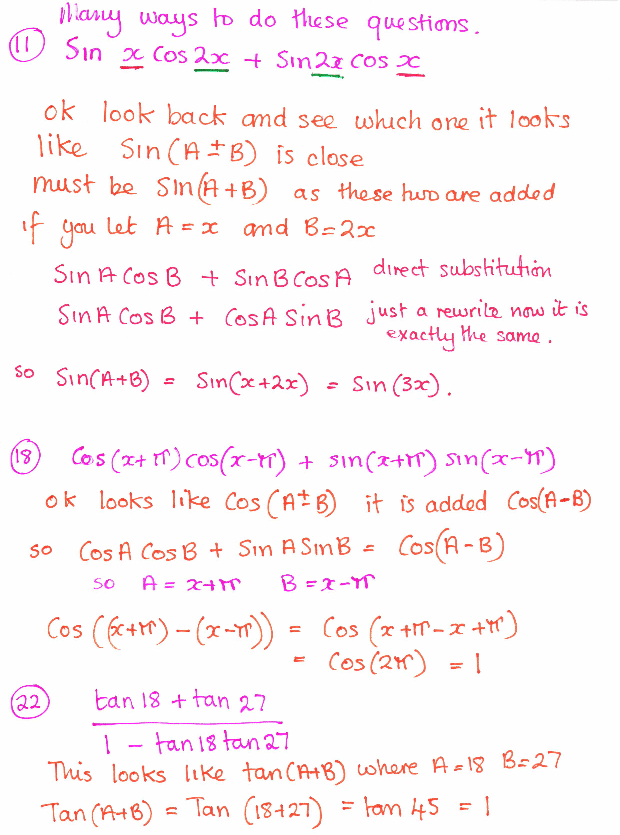 Many ways to do these questions.
(11) Sin x Cos 2x + Sin 2x Cos x
ok look back and see which one it looks
like Sin(A ± B) is close
must be Sin(A+B) as these two are added
if you let A = x and B = 2x
Sin A Cos B + Sin B Cos A direct substitution
Sin A Cos B + Cos A Sin B just a rewrite now it is
exactly the same.
so Sin(A+B) = Sin(x+2x) = Sin(3x).
(18) Cos(x+π)cos(x-π) + sin(x+π) sin(x-π)
ok looks like Cos(A±B) it is added Cos(A-B)
so Cos A Cos B + Sin A Sin B = Cos(A-B)
so A = x+π B = x-π
Cos((x+π)-(x-π)) = Cos(x+π-x+π)
= Cos(2π) = 1
(22) tan 18 + tan 27
1 - tan 18 tan 27
This looks like tan(A+B) where A=18 B=27
Tan(A+B) = Tan (18+27) = tan 45 = 1